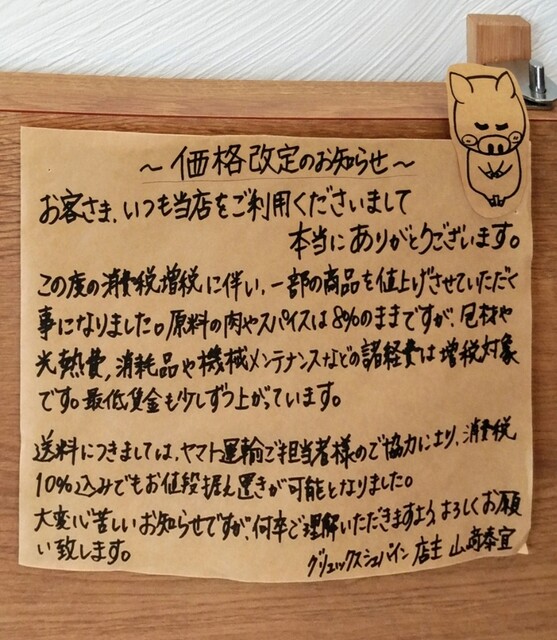 ～価格改定のお知らせ～
お客さま、いつも当店をご利用くださいまして
本当にありがとうございます。
この度の消費税増税に伴い、一部の商品を値上げさせていただく
事になりました。原料の肉やスパイスは8%のままですが、包材や
光熱費、消耗品や機械メンテナンスなどの諸経費は増税対象
です。最低賃金も少しずつ上がっています。
送料につきましては、ヤマト運輸ご担当者様のご協力により、消費税
10%込みでもお値段据え置きが可能となりました。
大変心苦しいお知らせですが、何卒ご理解いただきますよう、よろしくお願
い致します。
グリュックスシュバイン 店主 山﨑泰宜